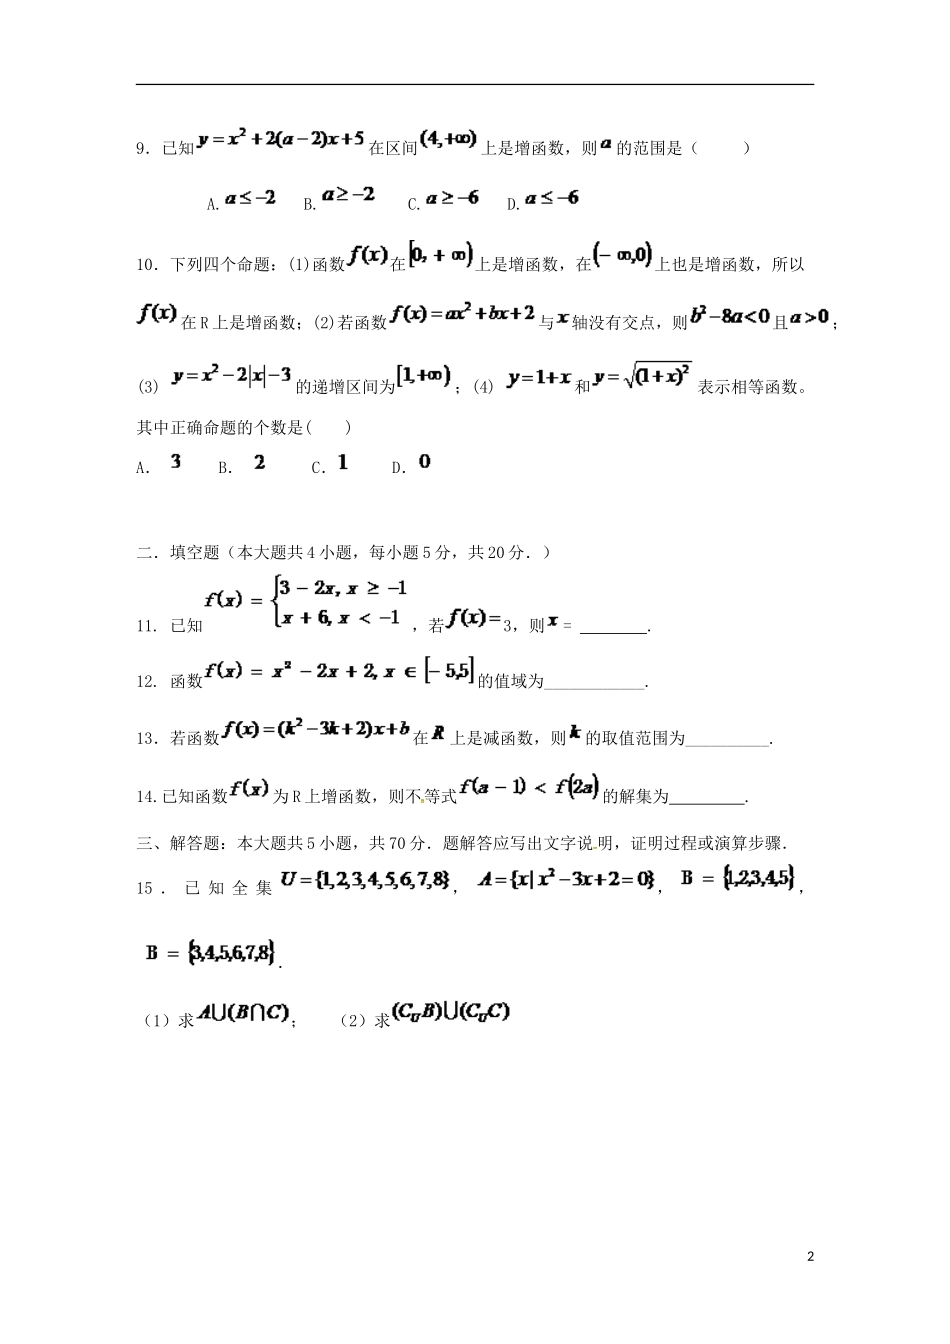 9．已知y=x²+2(a−2)x+5在区间(4,+∞)上是增函数，则a的范围是（　　）
A.a≤−2 B.a≥−2 C.a≥−6 D.a≤−6
10．下列四个命题：(1)函数f(x)在[0,+∞)上是增函数，在(−∞,0)上也是增函数，所以
f(x)在R上是增函数；(2)若函数f(x)=ax²+bx+2与x轴没有交点，则b²−8a<0且a>0；
(3) y=x²−2|x|−3的递增区间为[1,+∞)；(4) y=1+x和y=√(1+x)² 表示相等函数。
其中正确命题的个数是(　　)
A． 3 B． 2 C．1 D．0
二．填空题（本大题共4小题，每小题5分，共20分．）
11．已知f(x)={3−2x, x≥−1
x+6, x<−1，若f(x)=3，则x= ________．
12. 函数f(x)=x²−2x+2, x∈[−5,5]的值域为____________．
13．若函数f(x)=(k²−3k+2)x+b在R上是减函数，则k的取值范围为__________．
14.已知函数f(x)为R上增函数，则不等式f(a−1)<f(2a)的解集为_________．
三、解答题：本大题共5小题，共70分．题解答应写出文字说明，证明过程或演算步骤．
15．已知全集U={1,2,3,4,5,6,7,8}，A={x|x²−3x+2=0}，B={1,2,3,4,5}，
B={3,4,5,6,7,8}．
（1）求A∪(B∩C)；　　（2）求(C_U B)∪(C_U C)
2